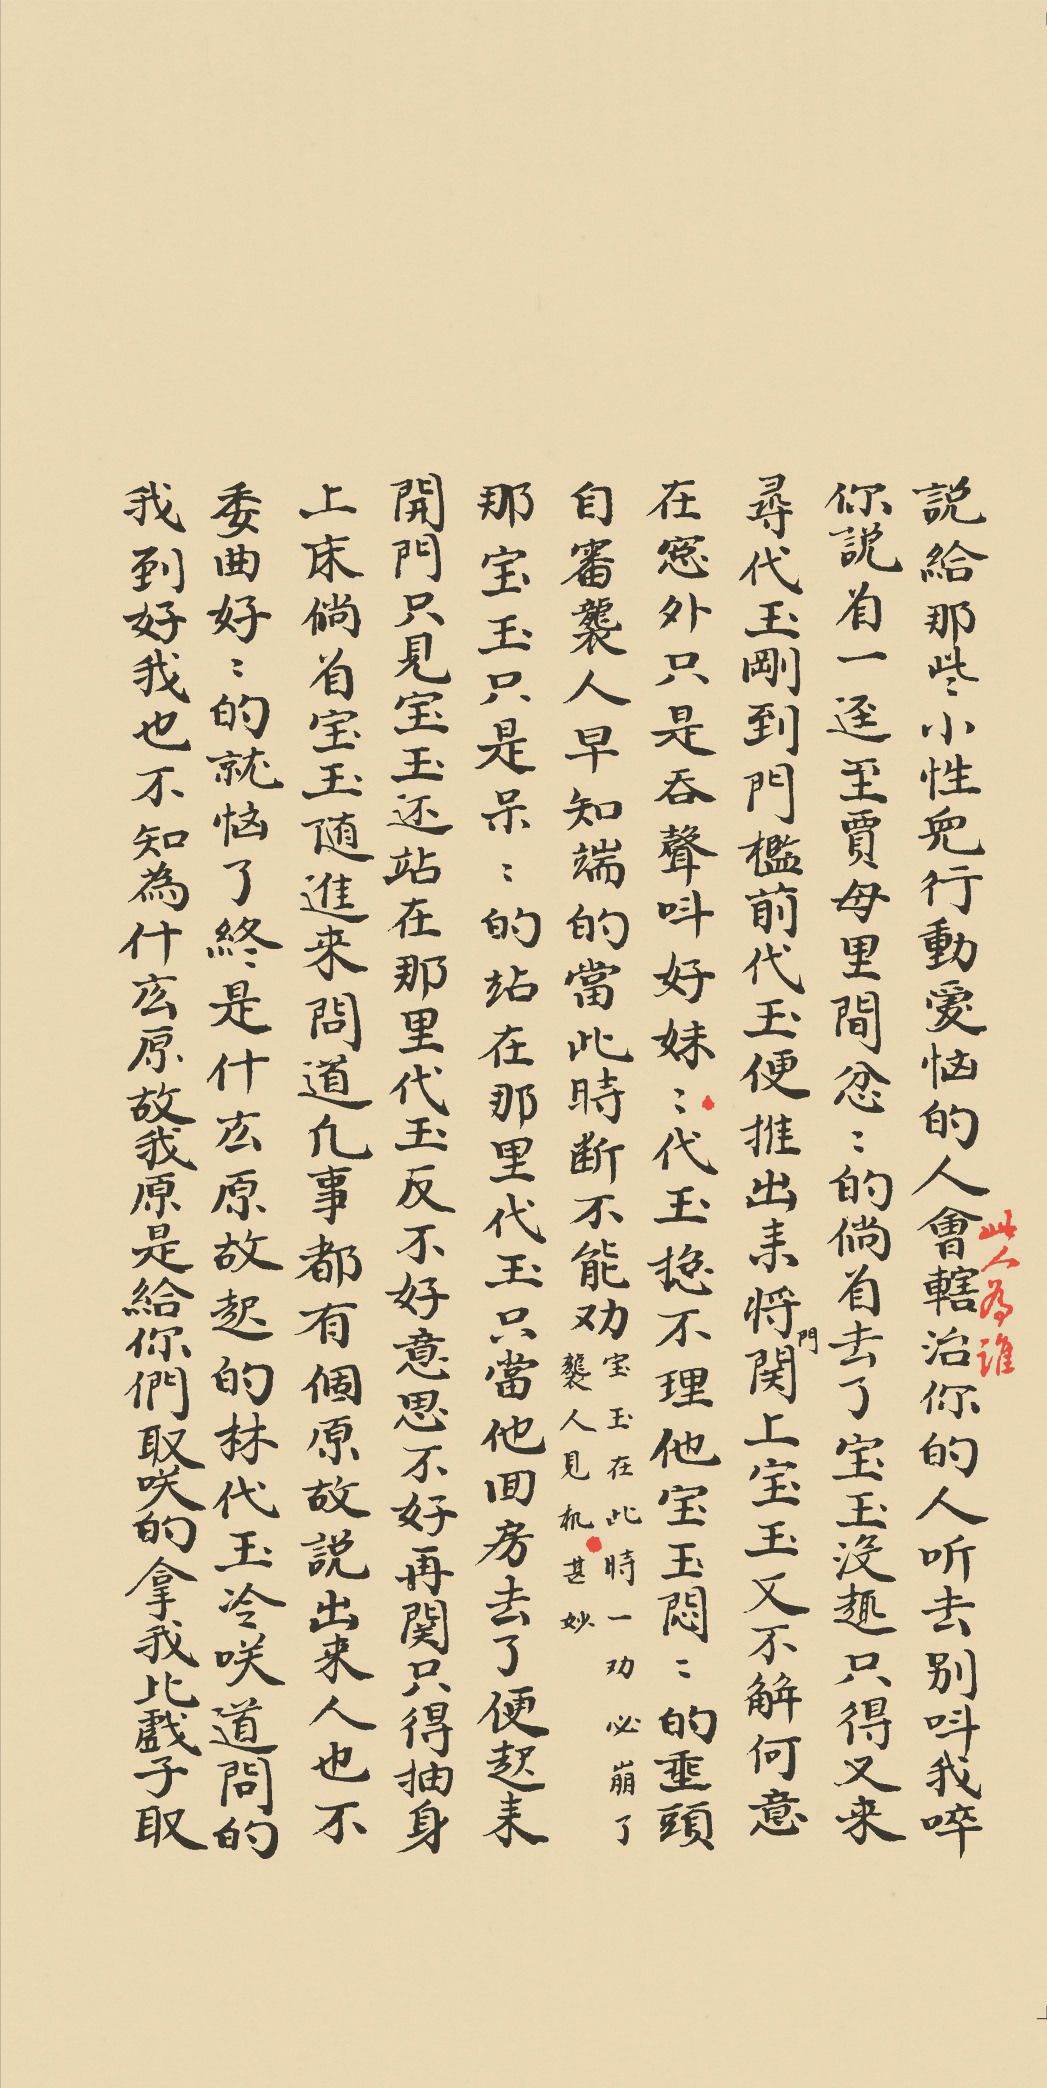 説給那些小性兒行動愛恼的人會轄治你的人听去别呌我啐
此人为谁
你説着一迳至賈母里間忿〻的倘着去了宝玉没趣只得又来
尋代玉剛到門檻前代玉便推出来将門関上宝玉又不解何意
在窓外只是吞聲呌好妹〻代玉捴不理他宝玉悶〻的垂頭
自審襲人早知端的當此時断不能劝宝玉在此時一劝必崩了
襲人見机甚妙
那宝玉只是呆〻的站在那里代玉只當他囬房去了便起来
開門只見宝玉还站在那里代玉反不好意思不好再関只得抽身
上床倘着宝玉随進来問道凢事都有個原故説出来人也不
委曲好〻的就恼了終是什広原故起的林代玉冷咲道問的
我到好我也不知為什広原故我原是給你們取咲的拿我比戱子取